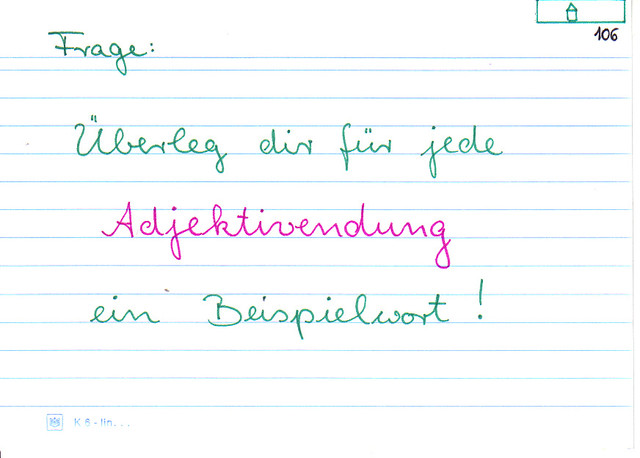 106
Frage:
Überleg dir für jede
Adjektivendung
ein Beispielwort!
K 6-lin...